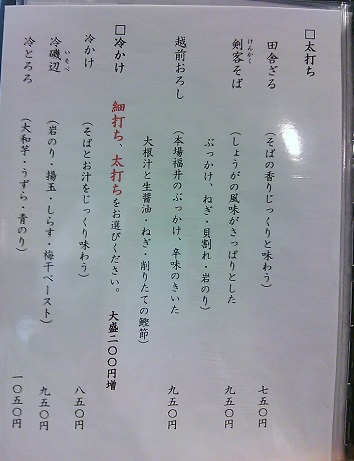 □太打ち
田舎ざる（そばの香りじっくりと味わう）七五〇円
けんかく
剣客そば（しょうがの風味がさっぱりとした
ぶっかけ、ねぎ・貝割れ・岩のり）九五〇円
越前おろし（本場福井のぶっかけ、辛味のきいた
大根汁と生醤油・ねぎ・削りたての鰹節）九五〇円
□冷かけ 細打ち、太打ちをお選びください。大盛二〇〇円増
冷かけ（そばとお汁をじっくり味わう）八五〇円
いそべ
冷磯辺（岩のり・揚玉・しらす・梅干ペースト）九五〇円
冷とろろ（大和芋・うずら・青のり）一〇五〇円